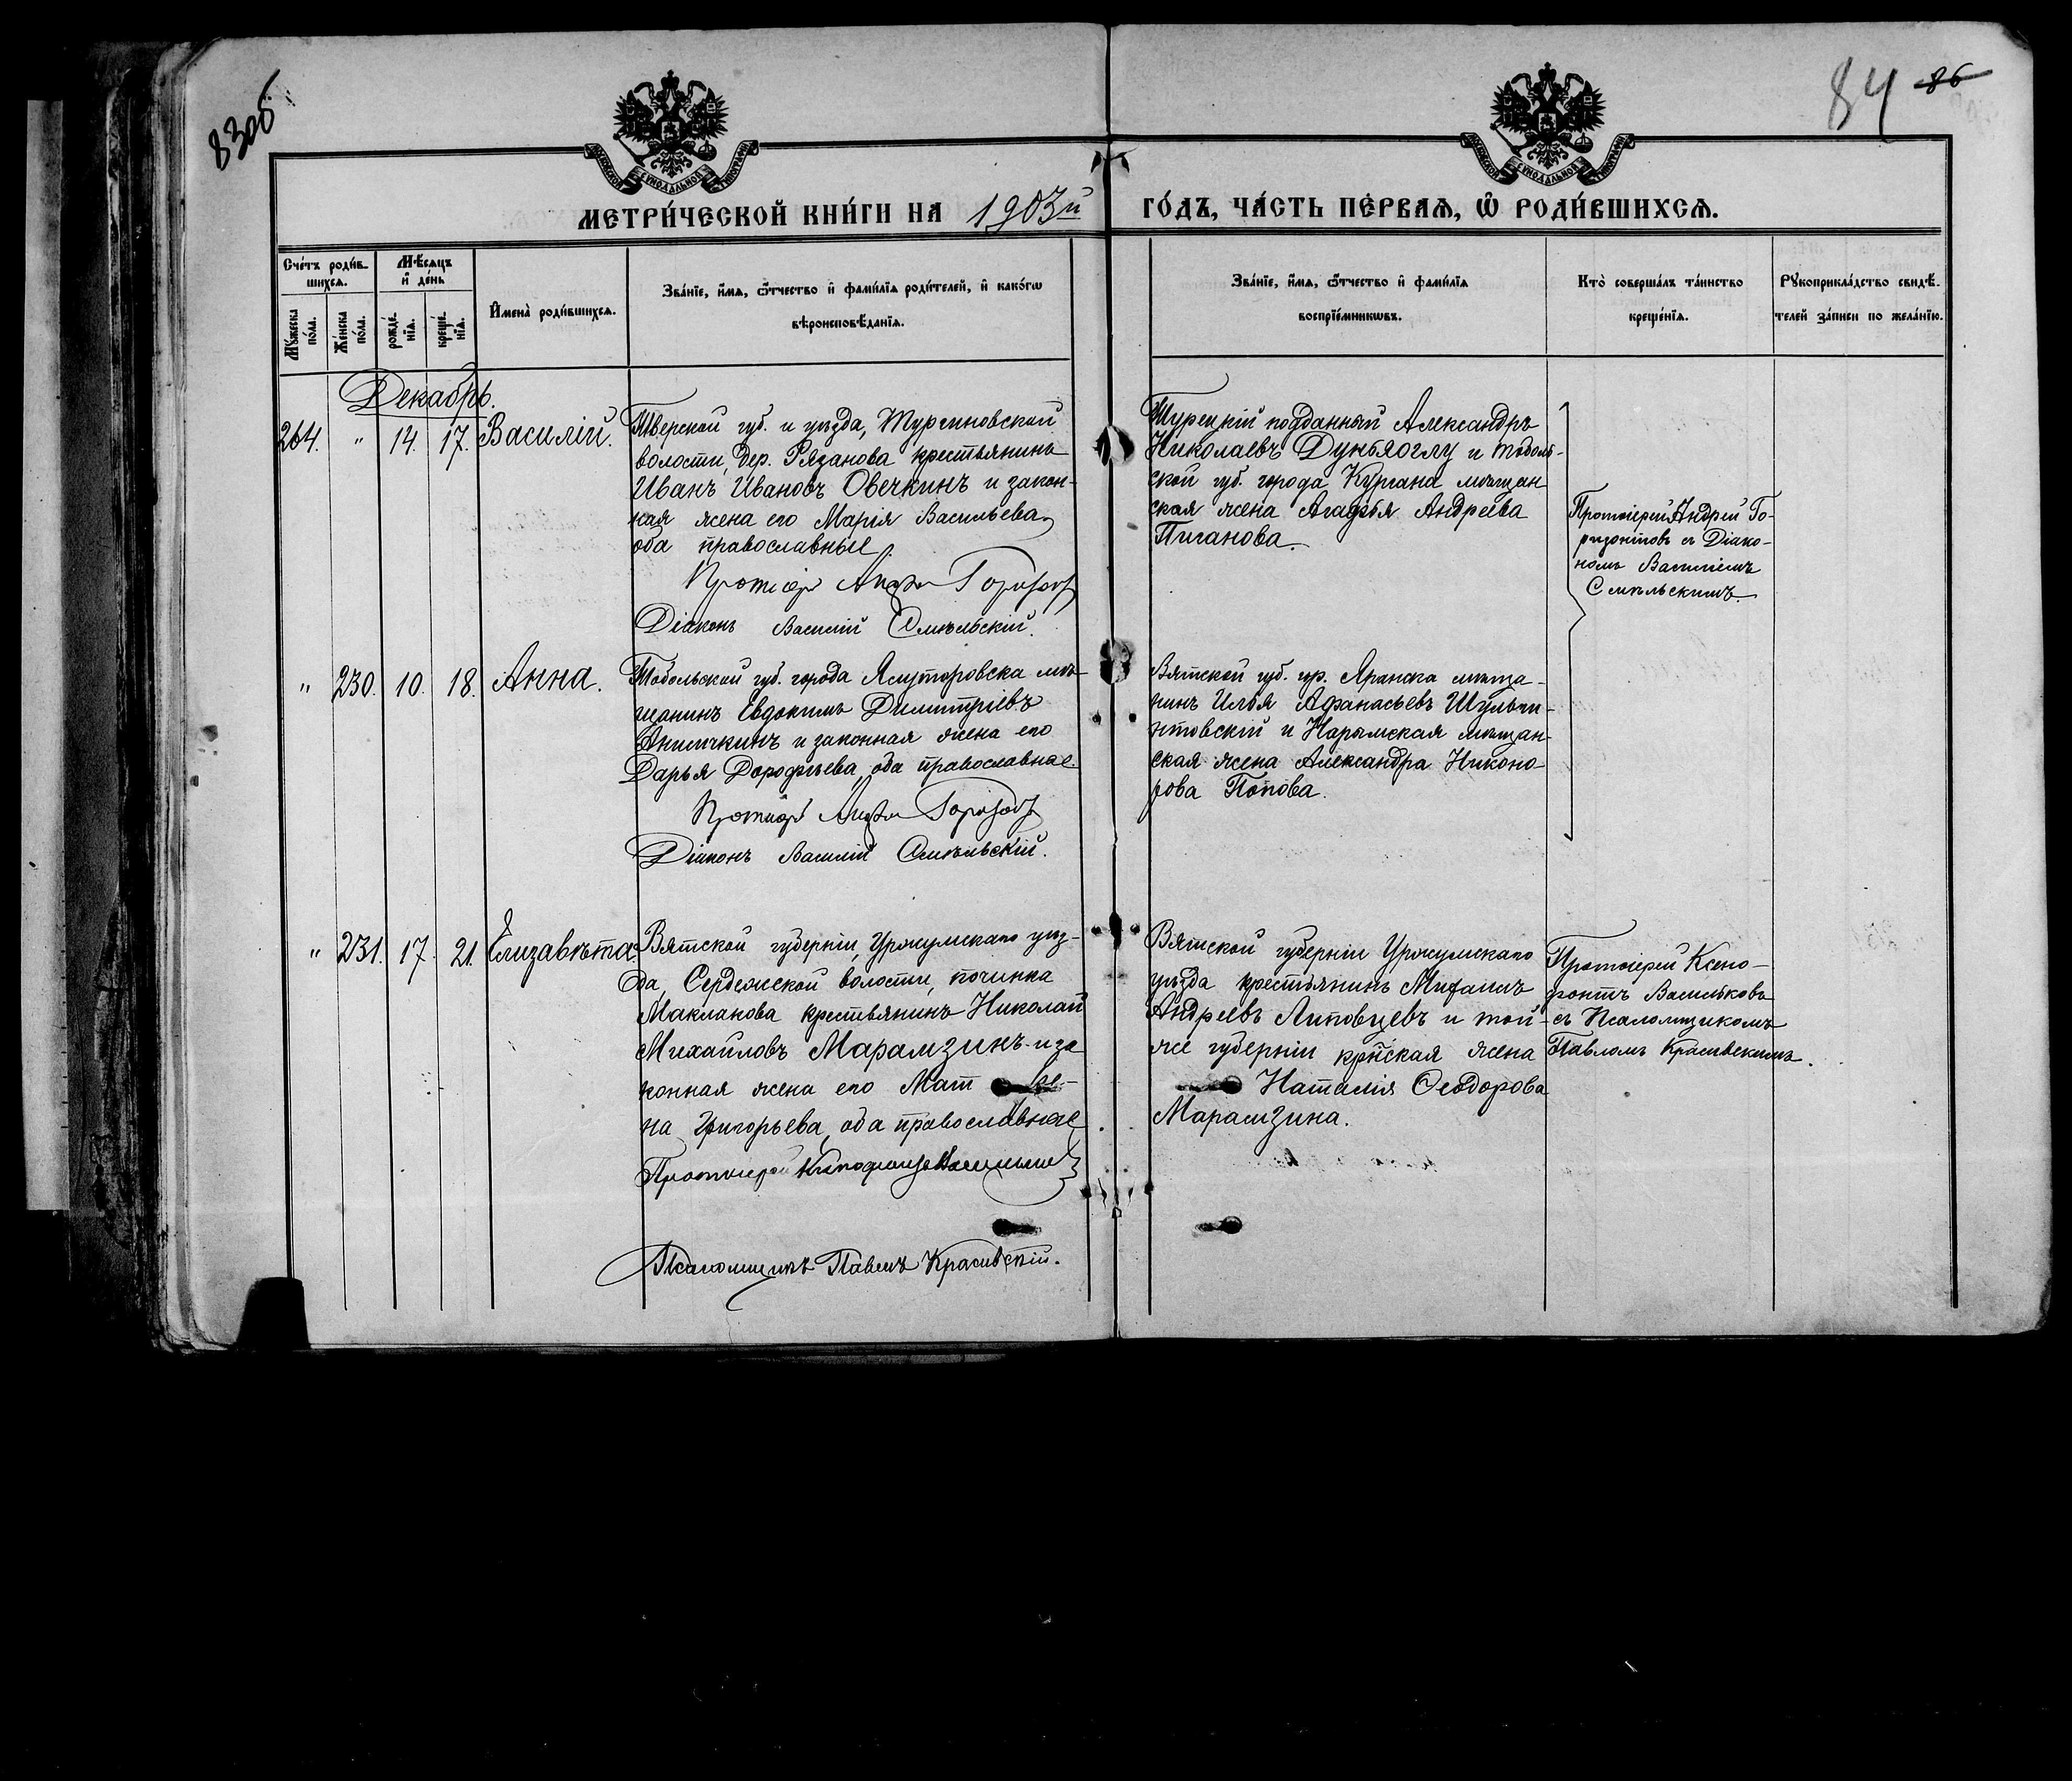 83об
84 86
МОСКОВСКОЙ СѴНОДАЛЬНОЙ ТИПОГРАФІИ
МОСКОВСКОЙ СѴНОДАЛЬНОЙ ТИПОГРАФІИ
МЕТРИ́ЧЕСКОЙ КНИ́ГИ НА 1903й ГО́ДЪ, ЧА́СТЬ ПЕ́РВАѦ, Ѽ РОДИ́ВШИХСѦ.
Сче́тъ роди́в-
шихсѧ.
Мꙋ́жеска
по́ла.
Же́нска
по́ла.
Мѣ́сѧцъ
и҆ де́нь
рожде́-
нїѧ.
креще́-
нїѧ.
И҆мена̀ роди́вшихсѧ.
Зва́нїе, и҆́мѧ, ѻ҆́тчество и҆ фами́лїѧ роди́телей, и҆ како́гѡ
вѣроисповѣ́данїѧ.
Зва́нїе, и҆́мѧ, ѻ҆́тчество и҆ фами́лїѧ
воспрїе́мникѡвъ.
Кто̀ соверша́лъ та́инство
креще́нїѧ.
Рꙋкоприкла́дство свидѣ́-
телей за́писи по жела́нїю.
Декабрь.
264. " 14. 17. Василій.
Тверской губ. и уѣзда, Тургиновской
волости, дер. Рязанова крестьянинъ
Иванъ Ивановъ Овечкинъ и закон-
ная жена его Марія Васильева,
оба православные.
Протоіер Андрей Горизонтов
Діаконъ Василій Смѣльскій.
Турецкій подданный Александръ
Николаевъ Дуньяоглу и Тоболь-
ской губ. города Кургана мѣщан
ская жена Агафья Андреева
Пиганова.
Протоіерей Андрей Го-
ризонтовъ съ Діако-
номъ Василіемъ
Смѣльскимъ.
" 230. 10. 18. Анна.
Тобольской губ. города Ялуторовска мѣ-
щанинъ Евдокимъ Димитріевъ
Анимкинъ и законная жена его
Дарья Дорофѣева, оба православные
Протоіер Андрей Горизонтов
Діаконъ Василій Смѣльскій.
Вятской губ. гор. Яранска мѣща-
нинъ Илья Афанасьевъ Шульги-
нтовскій и Нарымская мѣщан-
ская жена Александра Никоно-
рова Попова.
" 231. 17. 21. Елизавѣта.
Вятской губерніи, Уржумскаго уѣз-
да, Сердежской волости, починка
Макланова крестьянинъ Николай
Михайловъ Марамзинъ и за
конная жена его Мат ре-
на Григорьева, оба православные
Протоіерей Ксенофонтъ Васильков
Псаломщикъ Павелъ Красивскій.
Вятской губерніи Уржумскаго
уѣзда крестьянинъ Михаилъ
Андреевъ Липовцевъ и той-
же губерніи кр-нская жена
Наталія Ѳеодорова
Марамзина.
Протоіерей Ксено-
фонтъ Васильковъ
съ Псаломщикомъ
Павломъ Красивскимъ.